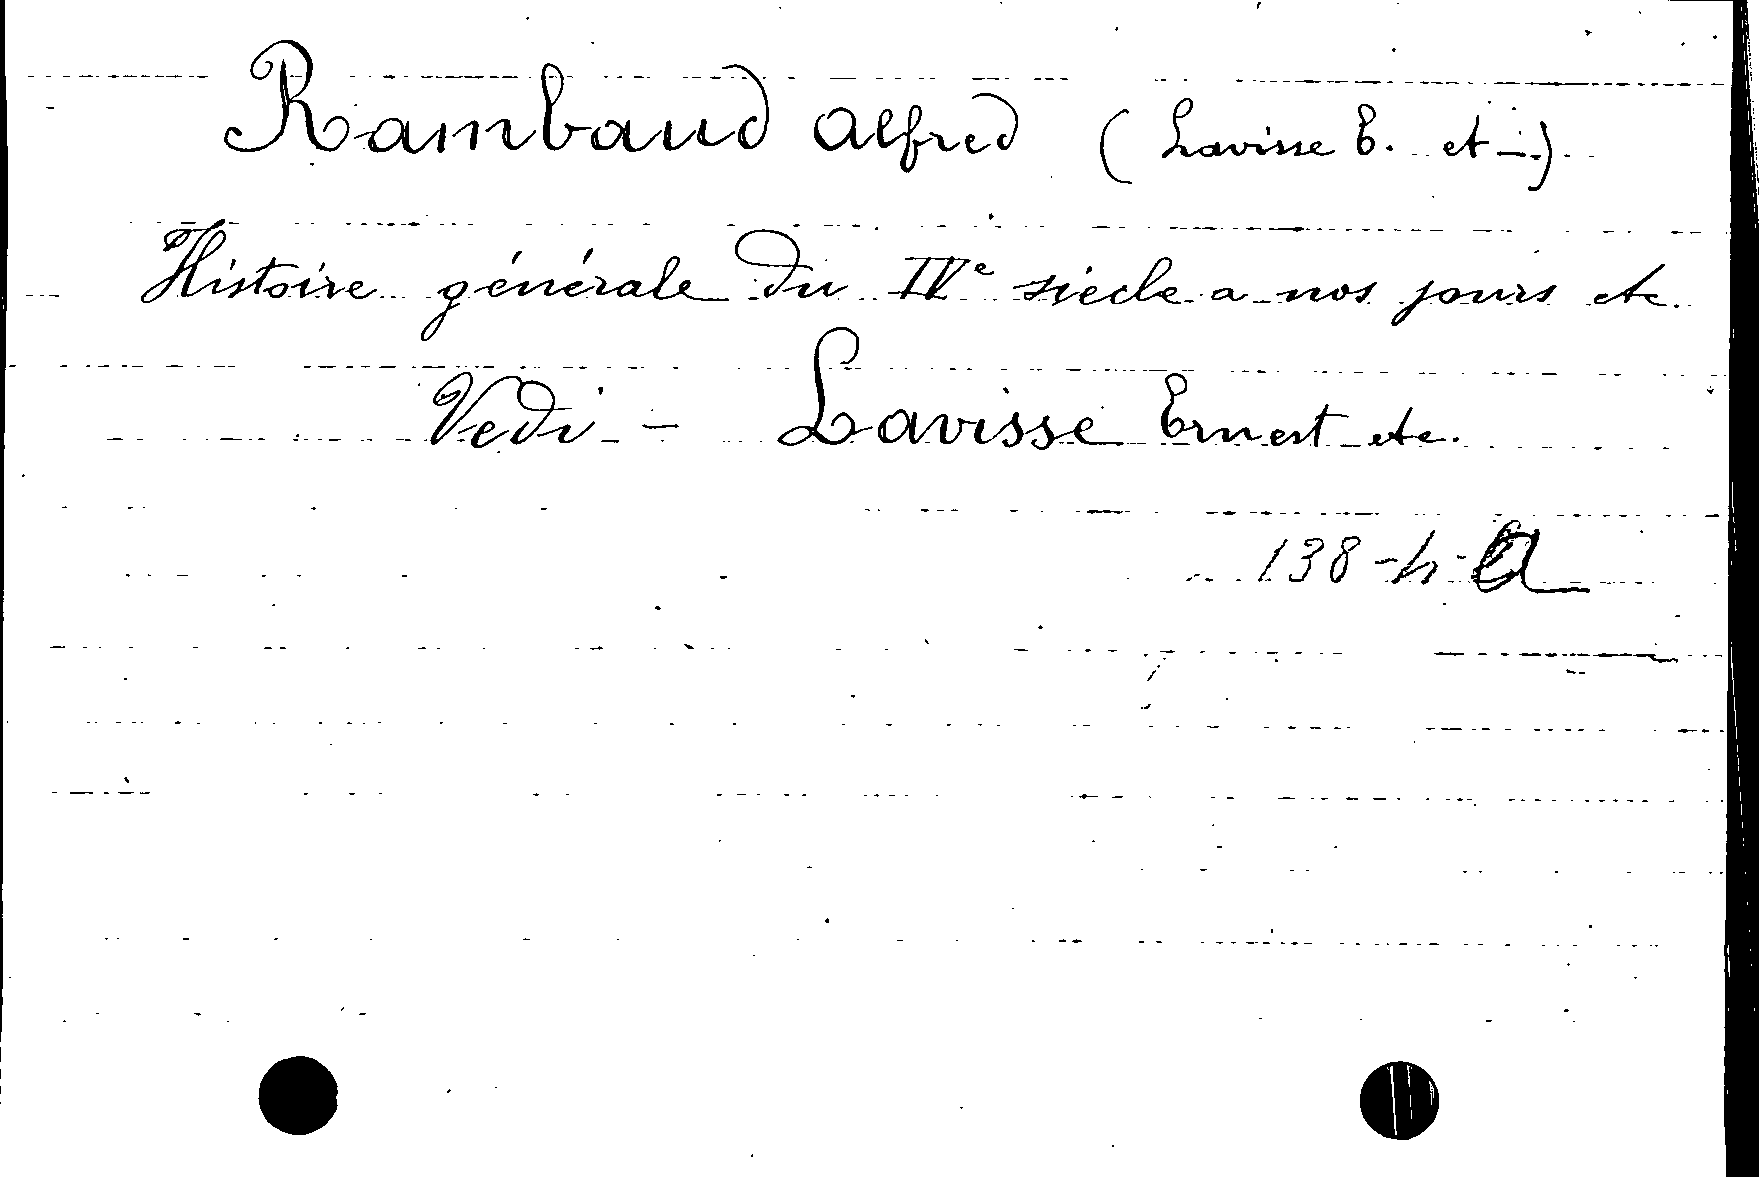 Rambaud Alfred (Lavisse E. et -.)
Histoire générale du IVe siècle a nos jours etc.
Vedi - Lavisse Ernest etc.
138-h-